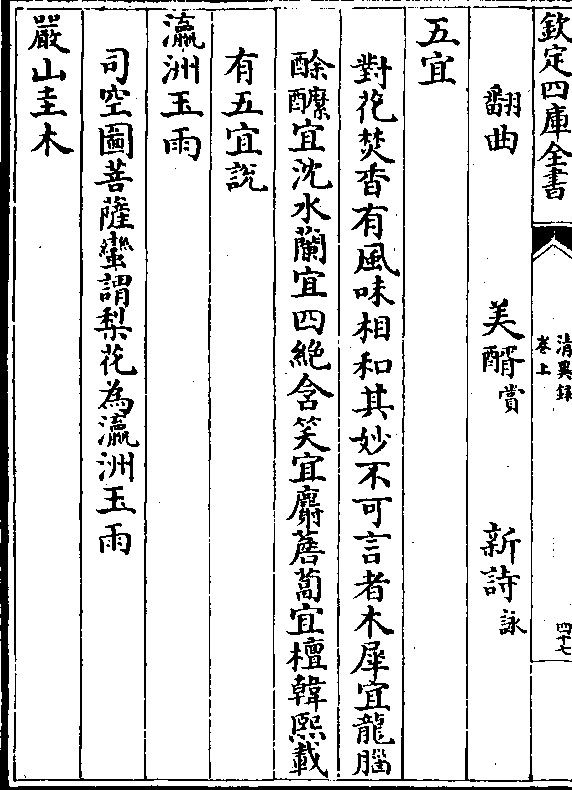 欽定四庫全書
清異錄
卷上
四十七
翻曲 美醑賞 新詩詠
五宜
對花焚香有風味相和其妙不可言者木犀宜龍腦
酴醾宜沈水蘭宜四絶含笑宜麝薝蔔宜檀韓熙載
有五宜說
瀛洲玉雨
司空圖菩薩蠻謂梨花為瀛洲玉雨
巖山圭木